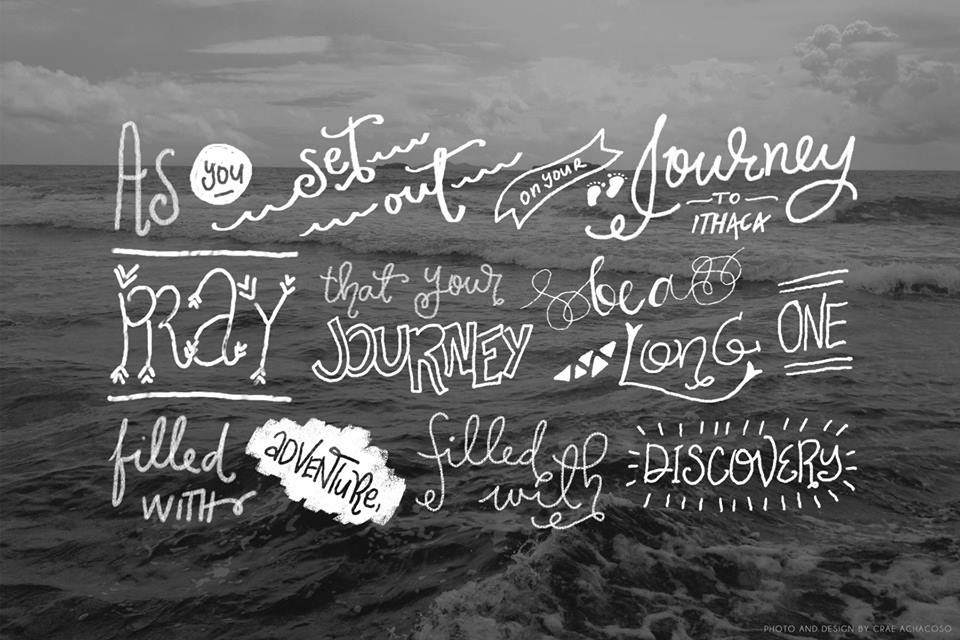 As you set out on your Journey to ITHACA
PRAY that your JOURNEY be a Long ONE
filled with ADVENTURE, filled with DISCOVERY
PHOTO AND DESIGN BY CRAE ACHACOSO